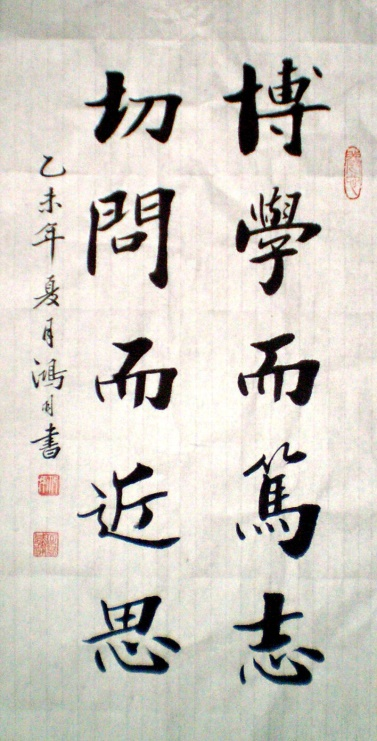 博學而篤志
切問而近思
乙未年夏月鴻月書